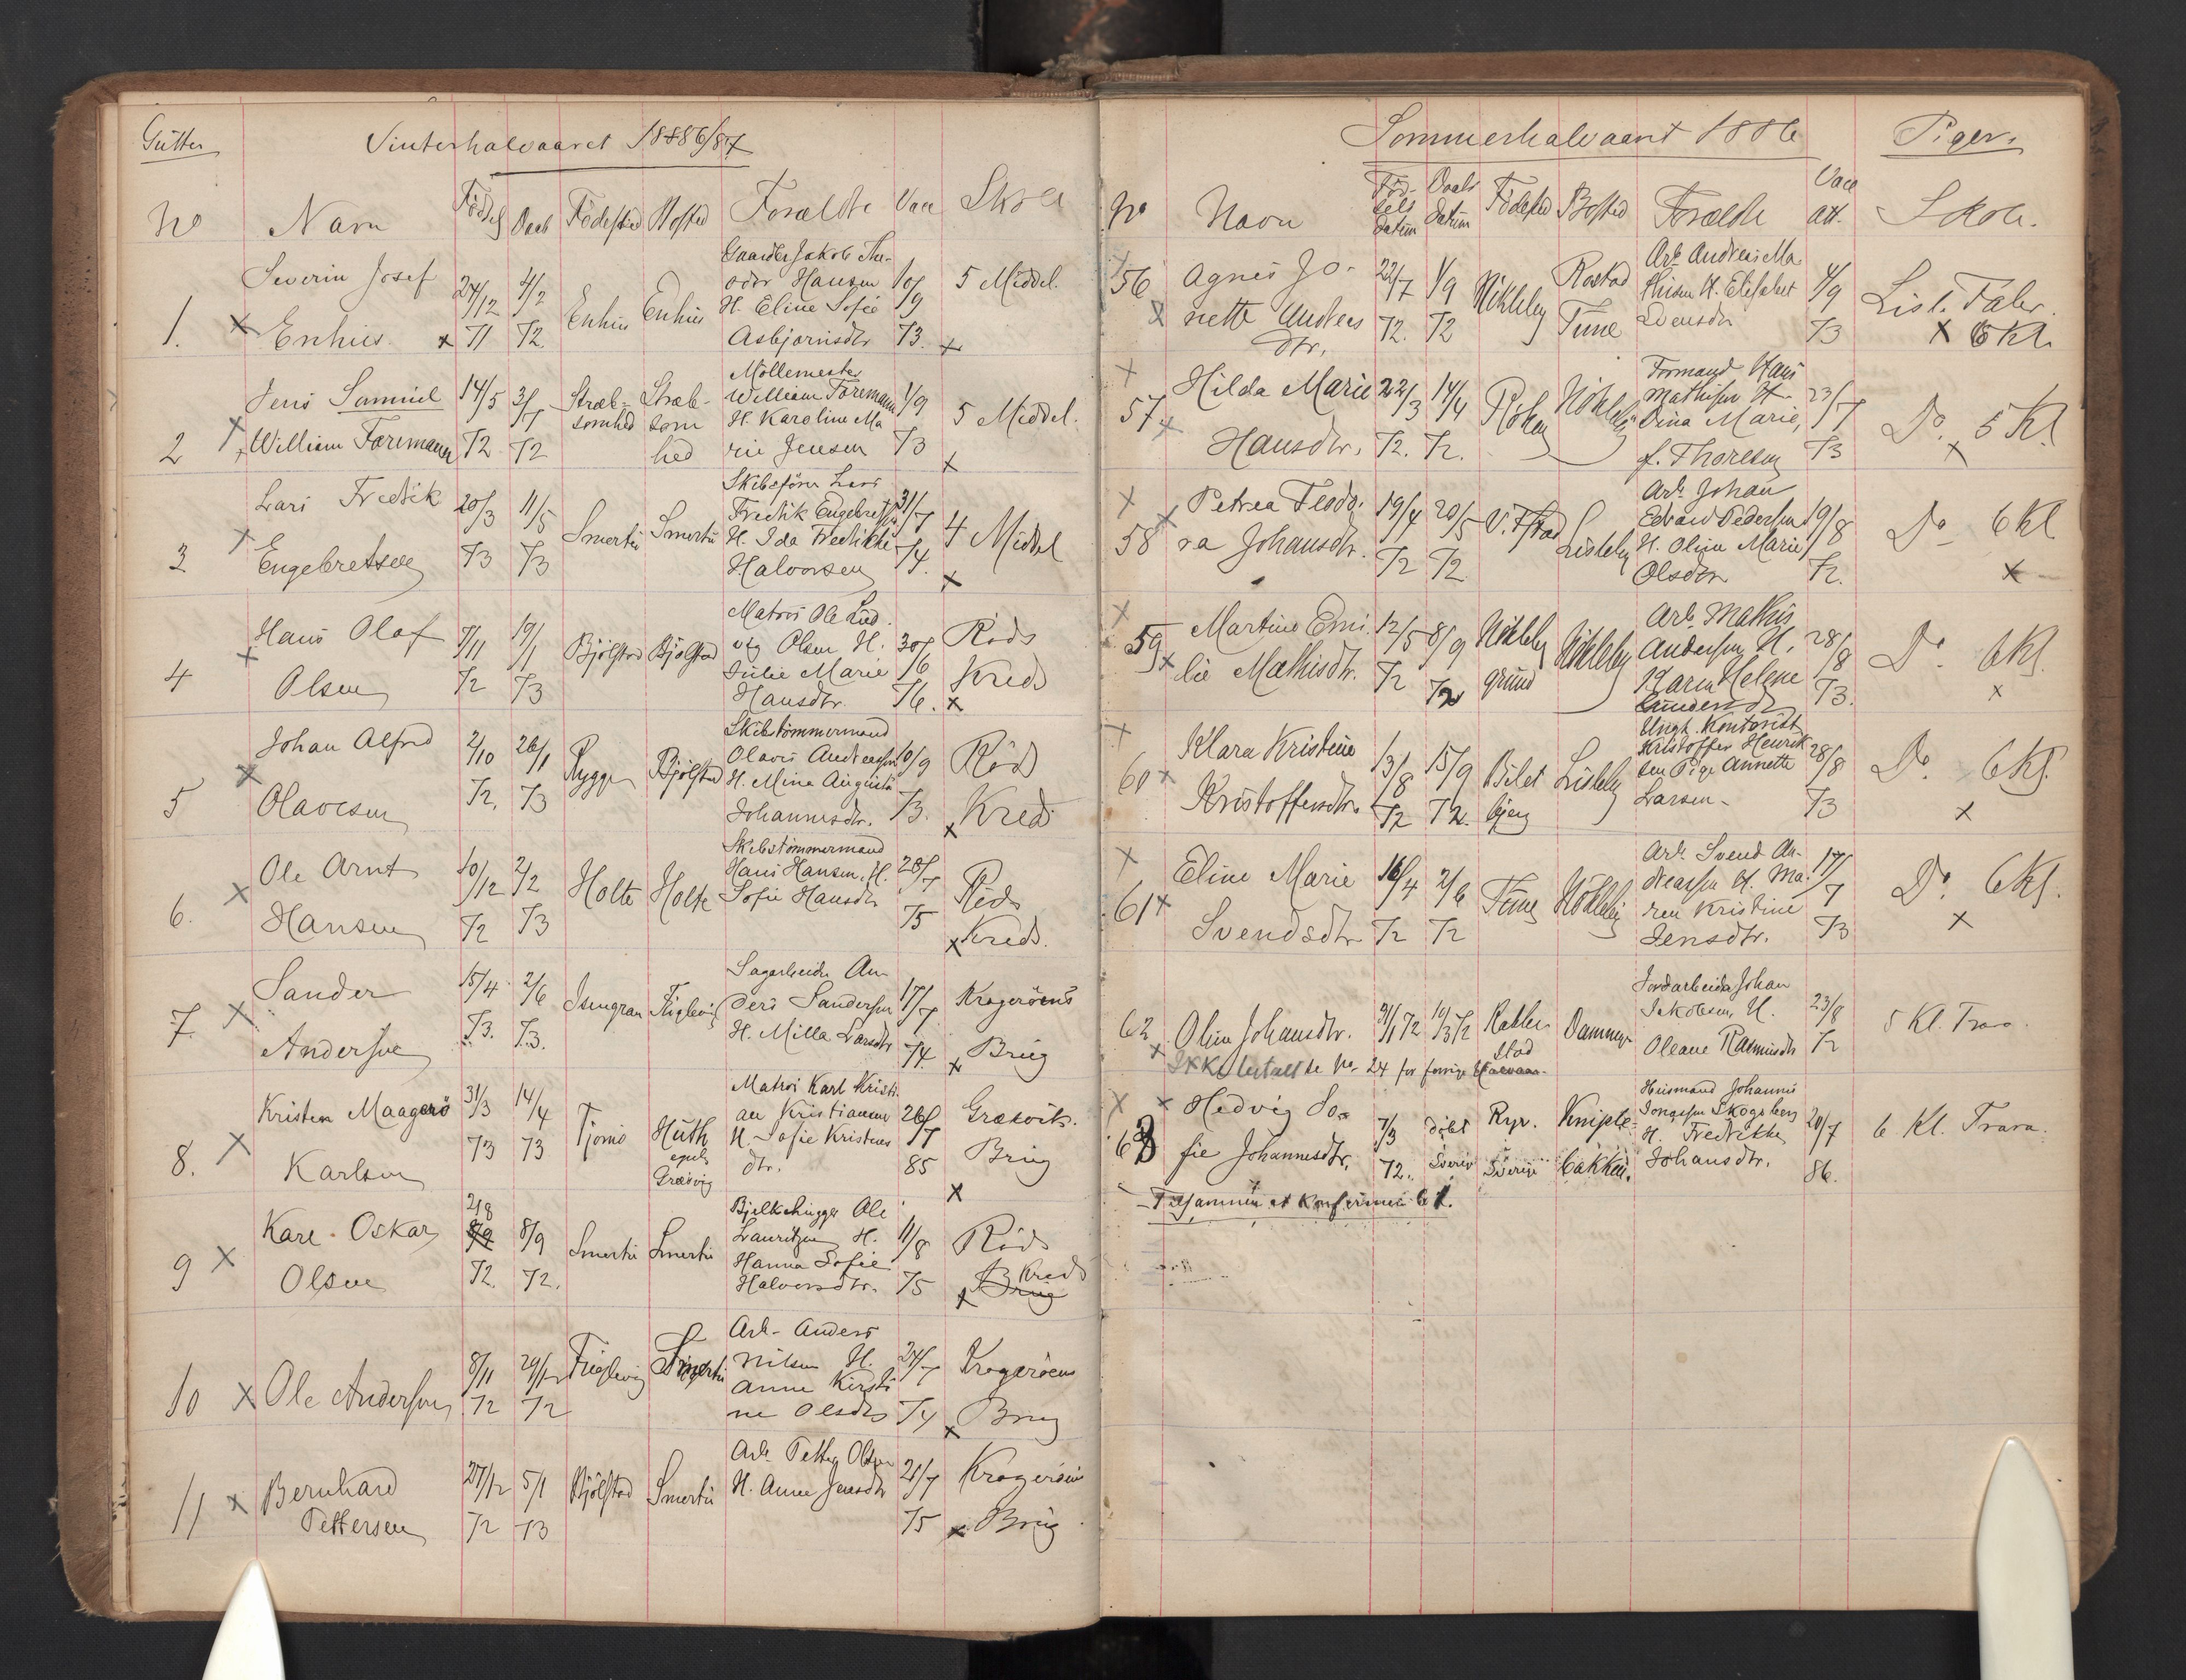 Gutter
Vinterhalvaaret 1886/87
No Navn Födsel Daab Födested Bosted Forældre Vacc Skole
Severin Josef
Enhus
1. 24/12 71 4/2 72. Enhus Enhus
Gaardbr Jakob The-
odor Hansen
H. Eline Sofie
Asbjörnsdtr
10/9 73. 5 Middel.
Jens Samuel
William Foremann
2 14/5 72 3/7 72
Stræb-
somhed
Stræb-
som
hed
Möllemester
William Foremann
H. Karoline Ma
rie Jensen
1/9 73 5 Middel.
Lars Fredrik
Engebretsen
3 20/3 73 11/5 73 Smertu Smertu
Skibsförer Lars
Fredrik Engebretsen
H. Ida Fredrikke
Halvorsen
31/7 74. 4 Middel
Hans Olaf
Olsen
4 7/11 72 19/1 73 Bjölstad Bjölstad
Matros Ole Lud
vig Olsen H.
Julie Marie
Hansdtr.
30/6 76.
Röds
Kreds
Johan Alfred
Olavesen
5 2/10 72. 26/1 73 Rygge Bjölstad
Skibstömmermand
Olavus Andreassen
H. Mina Augusta
Johannesdtr.
10/9 73.
Röds
Kreds
Ole Arnt
Hansen
6. 10/12 72 2/2 73 Holte Holte
Skibstömmermand
Hans Hansen. H.
Sofie Hansdtr
28/7 75
Röds
Kreds.
Sander
Andersen
7. 15/4 73. 2/6 73. Isengran
Sagarbeider An
ders Sandersen
H. Milla Larsdtr
17/7 74.
Krageröens
Brug
Kristen Maagerö
Karlsen
8. 31/3 73 14/4 73 Tjömö
Huth
Græsvig
Matros Karl Kristi
an Kristiansen
H. Sofie Kristens
dtr.
26/7 85
Græsvik.
Brug
Karl Oskar
Olsen
9 21/8 72. 8/9 72. Smertu Smertu
Bjelkehugger Ole
Lauritzen H.
Hanna Sofie
Halvorsdtr.
11/8 75
Röds
Kreds
Brug
10 Ole Andersen 8/11 72 29/12 72 Smertu
Arb. Anders
Nilsen H.
Anne Kirsti
ne Olsdtr
24/7 74
Krageröens
Brug
Bernhard
Pettersen
11 27/12 72 5/1 73 Bjölstad Smertu
Arb. Petter Olsen
H. Anne Jensdtr
21/7 75
Krageröens
Brug
Sommerhalvaaret 1886
Piger.
No Navn
Föd-
sels
datum
Daabs
datum
Födested Bosted Forældre
Vacc
att.
Skole.
56 Agnes Jo-
nette Andreas
dtr.
22/7 72. 1/9 72 Nökleby
Rostad
Tune
Arb. Andreas Ma
thisen H. Elisabet
Svensdtr
4/9 73
Lisl. Faler.
6 Kl.
57 Hilda Marie
Hansdtr.
22/3 72. 14/4 72. Röken Nökleby
Formand Hans
Mathisen H.
Dina Marie,
f. Thoresen
23/7 73
Do. 5 Kl
58 Petrea Teodo-
ra Johansdtr.
19/4 72 20/5 72 V. Fstad Lisleby
Arb. Johan
Edvard Pedersen
H. Oline Marie
Olsdtr
19/8 72.
Do 6 Kl
59 Martine Emi
lie Mathisdtr.
12/5 72 8/9 72
Nökleby
grund
Nökleby
Arb. Mathis
Andersen H.
Karen Helene
28/8 73.
Do. 6 Kl.
60 Klara Kristine
Kristoffersdtr.
13/8 72 15/9 72.
Bilet
bjerg
Lisleby
Ungk. Kontorist
Kristoffer Henrik
sen Pige Annette
Larsen-
28/8 73
Do. 6 Kl.
61 Eline Marie
Svendsdtr
16/4 72 2/6 72 Tune Nökleby
Arb. Svend An-
dreassen H. Ma
ren Kristine
Jensdtr.
17/7 73
Do. 6 Kl.
62 Oline Johansdtr. 31/1 72 10/3 72
Rakke
stad
Jordarbeider Johan
Jakobsen, H.
Oleane Rasmusdtr
23/8 72
5 Kl. Trara.
24 for forrige Halvaar.
63 Hedvig So-
fie Johannesdtr.
7/3 72.
döbt
Sverige
Sverige
Kniple-
bakken.
Husmand Johannes
Jonassen Skogsberg
H. Fredrikke
Johansdtr.
20/7 86.
6 Kl. Trara.